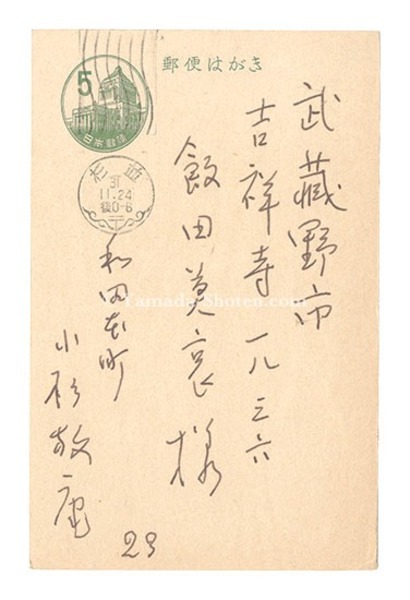 郵便はがき
5
日本郵便
杉並
31
11.24
後0-6
武蔵野市
吉祥寺一八三六
飯田
様
和田本町
小杉放庵
23
Yamada Shoten.com